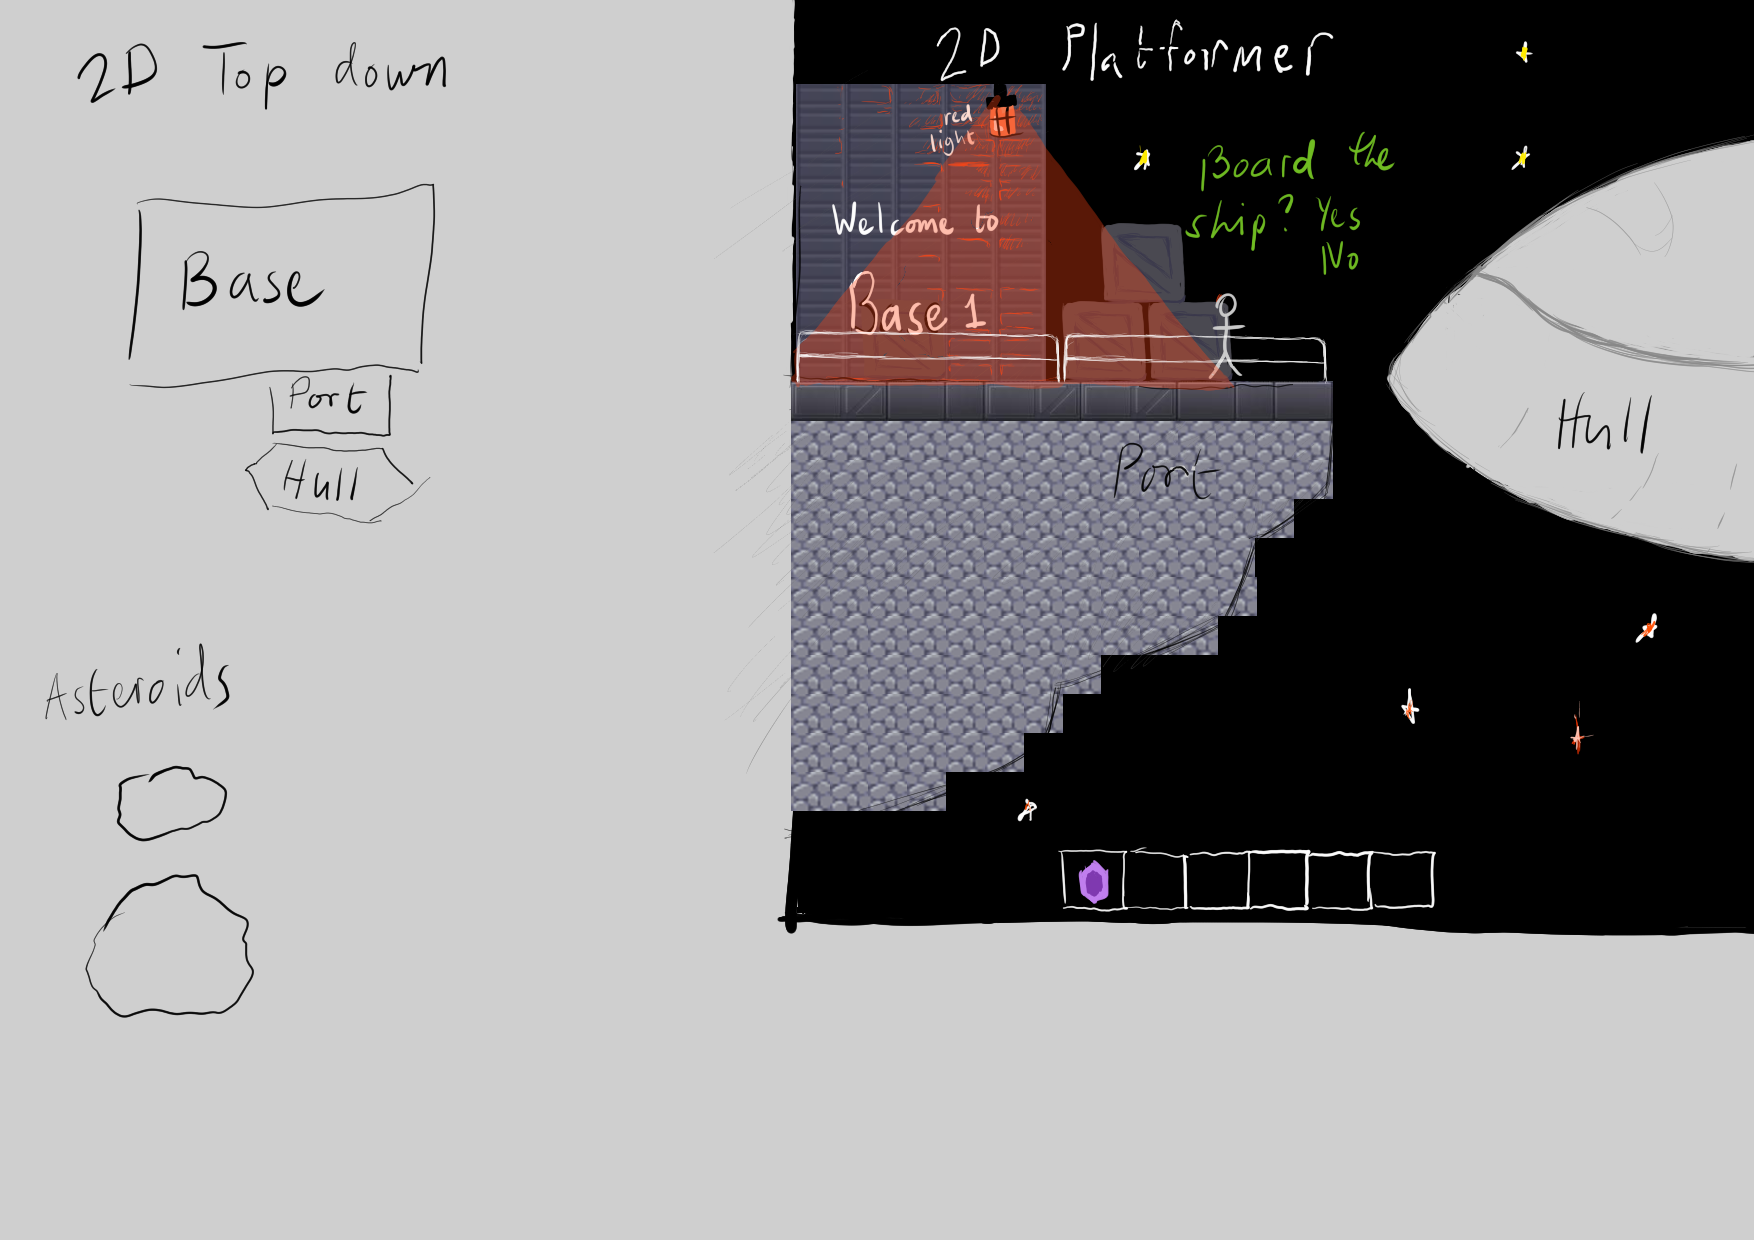 2D Top down
Base
Port
Hull
Asteroids
2D Platformer
red
light
Welcome to
Base 1
Board the
ship? Yes
No
Hull
Port